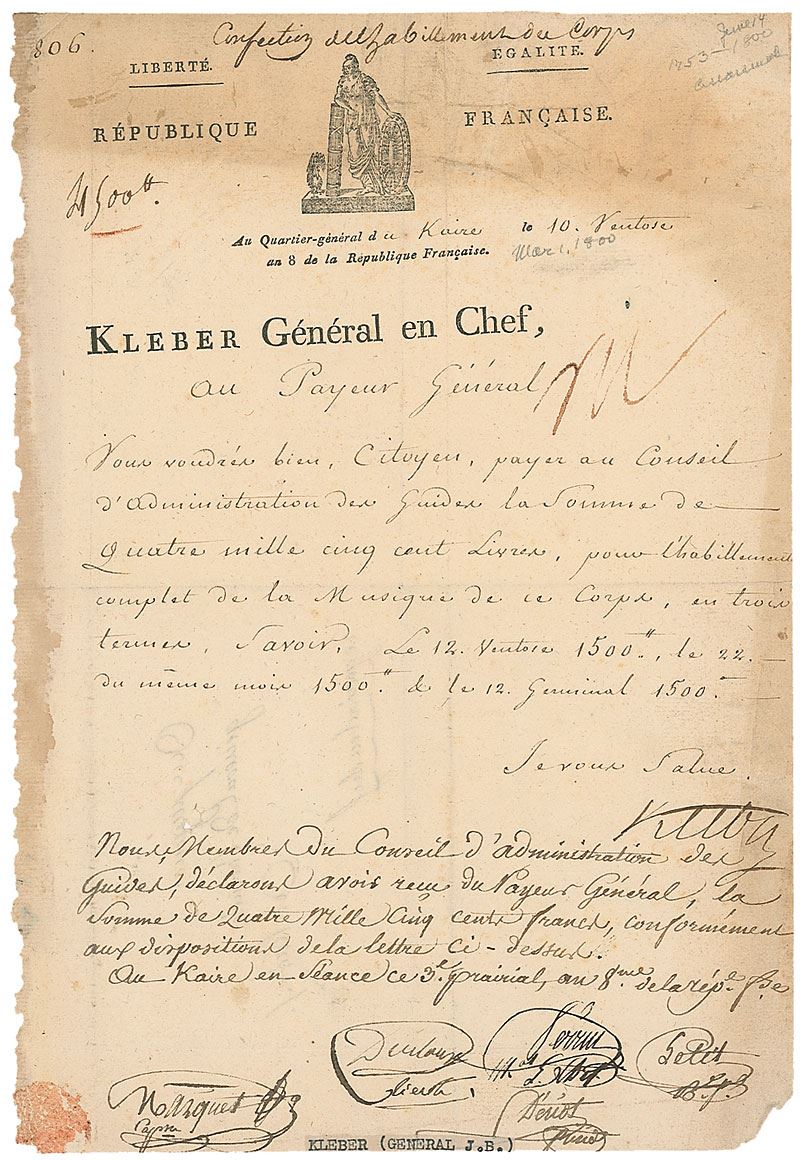 806. Confection de l'habillement du Corps
June 14
1753-1800
LIBERTÉ. EGALITE.
RÉPUBLIQUE FRANÇAISE.
4500tt.
Au Quartier-général du Kaire le 10. Ventose
an 8 de la République Française. Mar 1, 1800
KLEBER Général en Chef,
Au Payeur Général
Vous voudrés bien, Citoyen, payer au Conseil
d'Administration des Guides la Somme de
Quatre mille cinq cent Livres, pour l'habillement
complet de la Musique de ce Corps, en trois
termes, Savoir, Le 12. Ventose 1500tt., le 22.
du même mois 1500tt. & le 12. Germinal 1500tt.
Je vous Salue.
Kleber
Nous, Membres du Conseil d'administration des
Guides, déclarons avoir reçu du Payeur Général, la
Somme de Quatre Mille Cinq cents francs, conformément
aux dispositions de la lettre ci-dessus.
Au Kaire en Séance ce 3e. prairial, an 8me. de la rép. fse
Perrin
Petit
Marquet
KLEBER (GENERAL J.B.)